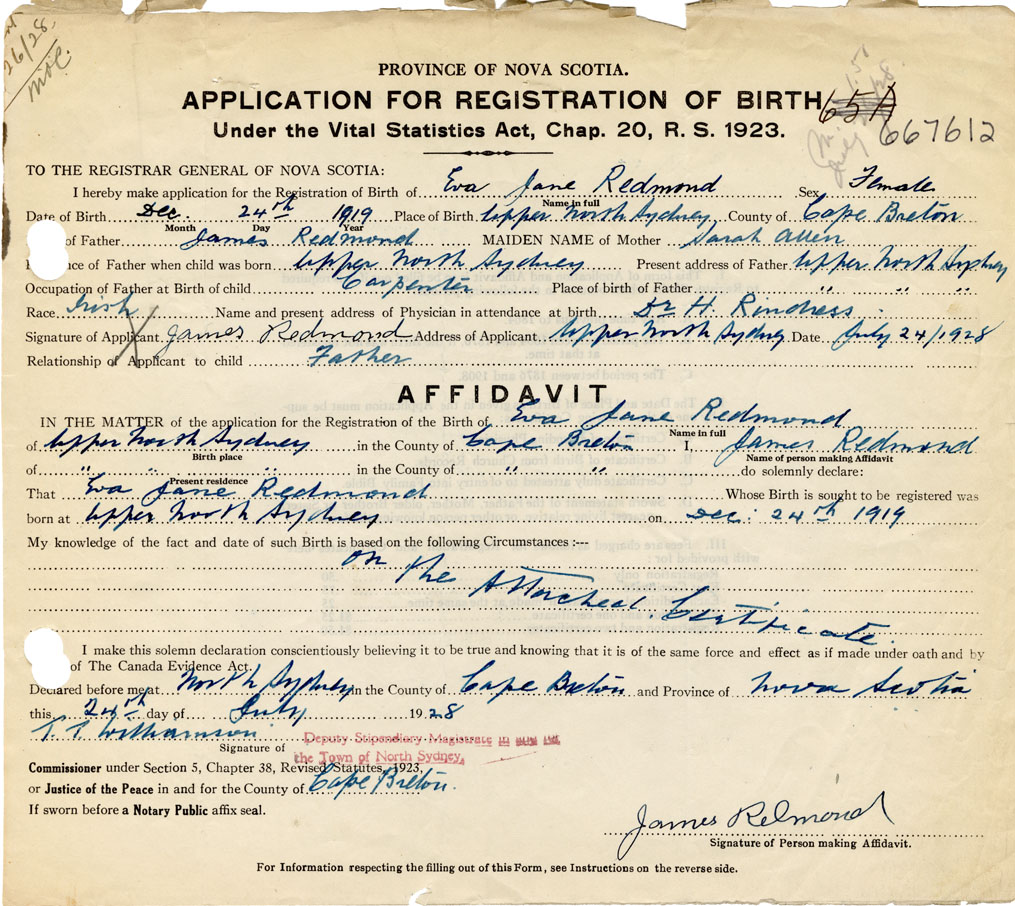 26/28
PROVINCE OF NOVA SCOTIA.
APPLICATION FOR REGISTRATION OF BIRTH
667612
Under the Vital Statistics Act, Chap. 20, R. S. 1923.
TO THE REGISTRAR GENERAL OF NOVA SCOTIA:
I hereby make application for the Registration of Birth of Eva Jane Redmond Sex Female
Name in full
Date of Birth Dec. 24th 1919 Place of Birth Upper North Sydney County of Cape Breton
Month Day Year
of Father James Redmond MAIDEN NAME of Mother Sarah Allen
ce of Father when child was born Upper North Sydney Present address of Father Upper North Sydney
Occupation of Father at Birth of child Carpenter Place of birth of Father " " "
Race Irish Name and present address of Physician in attendance at birth Dr H. Rindress
Signature of Applicant James Redmond Address of Applicant Upper North Sydney Date July 24/1928
Relationship of Applicant to child Father
AFFIDAVIT
IN THE MATTER of the application for the Registration of the Birth of Eva Jane Redmond
Name in full
of Upper North Sydney in the County of Cape Breton I, James Redmond
Birth place Name of person making Affidavit
of " " " in the County of " " do solemnly declare:
Present residence
That Eva Jane Redmond Whose Birth is sought to be registered was
born at Upper North Sydney on Dec: 24th 1919
My knowledge of the fact and date of such Birth is based on the following Circumstances :---
on the Attached Certificate.
I make this solemn declaration conscientiously believing it to be true and knowing that it is of the same force and effect as if made under oath and by
of The Canada Evidence Act.
Declared before me at North Sydney in the County of Cape Breton and Province of Nova Scotia
this 24th day of July 1928
Williamson
Signature of Deputy Stipendiary Magistrate in and for
the Town of North Sydney,
Commissioner under Section 5, Chapter 38, Revised Statutes, 1923,
or Justice of the Peace in and for the County of Cape Breton.
If sworn before a Notary Public affix seal.
James Redmond
Signature of Person making Affidavit.
For Information respecting the filling out of this Form, see Instructions on the reverse side.